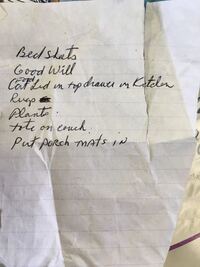 Bed skats
Good Will
Cat food Lid in top drawer in Kitchen
Rugs
Plants.
tote on couch.
Put PORCH MATS IN